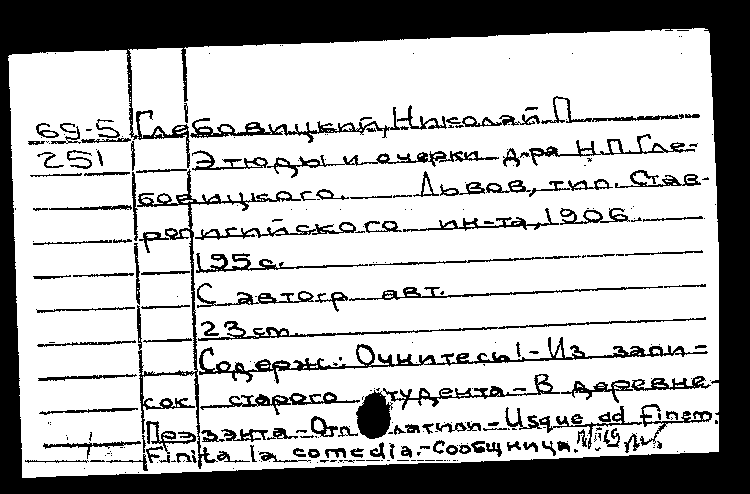 69-5 Глебовицкий, Николай П
251 Этюды и очерки д-ра Н.П. Гле-
бовицкого. Львов, тип. Став-
ропигийского ин-та, 1906.
195 с.
С автогр авт.
23 cm.
Содерж.: Очнитесь! - Из запи-
сок старого студента. - В деревне.-
- Отплатили. - Usque ad finem.
Finita la comedia. - Сообщница.